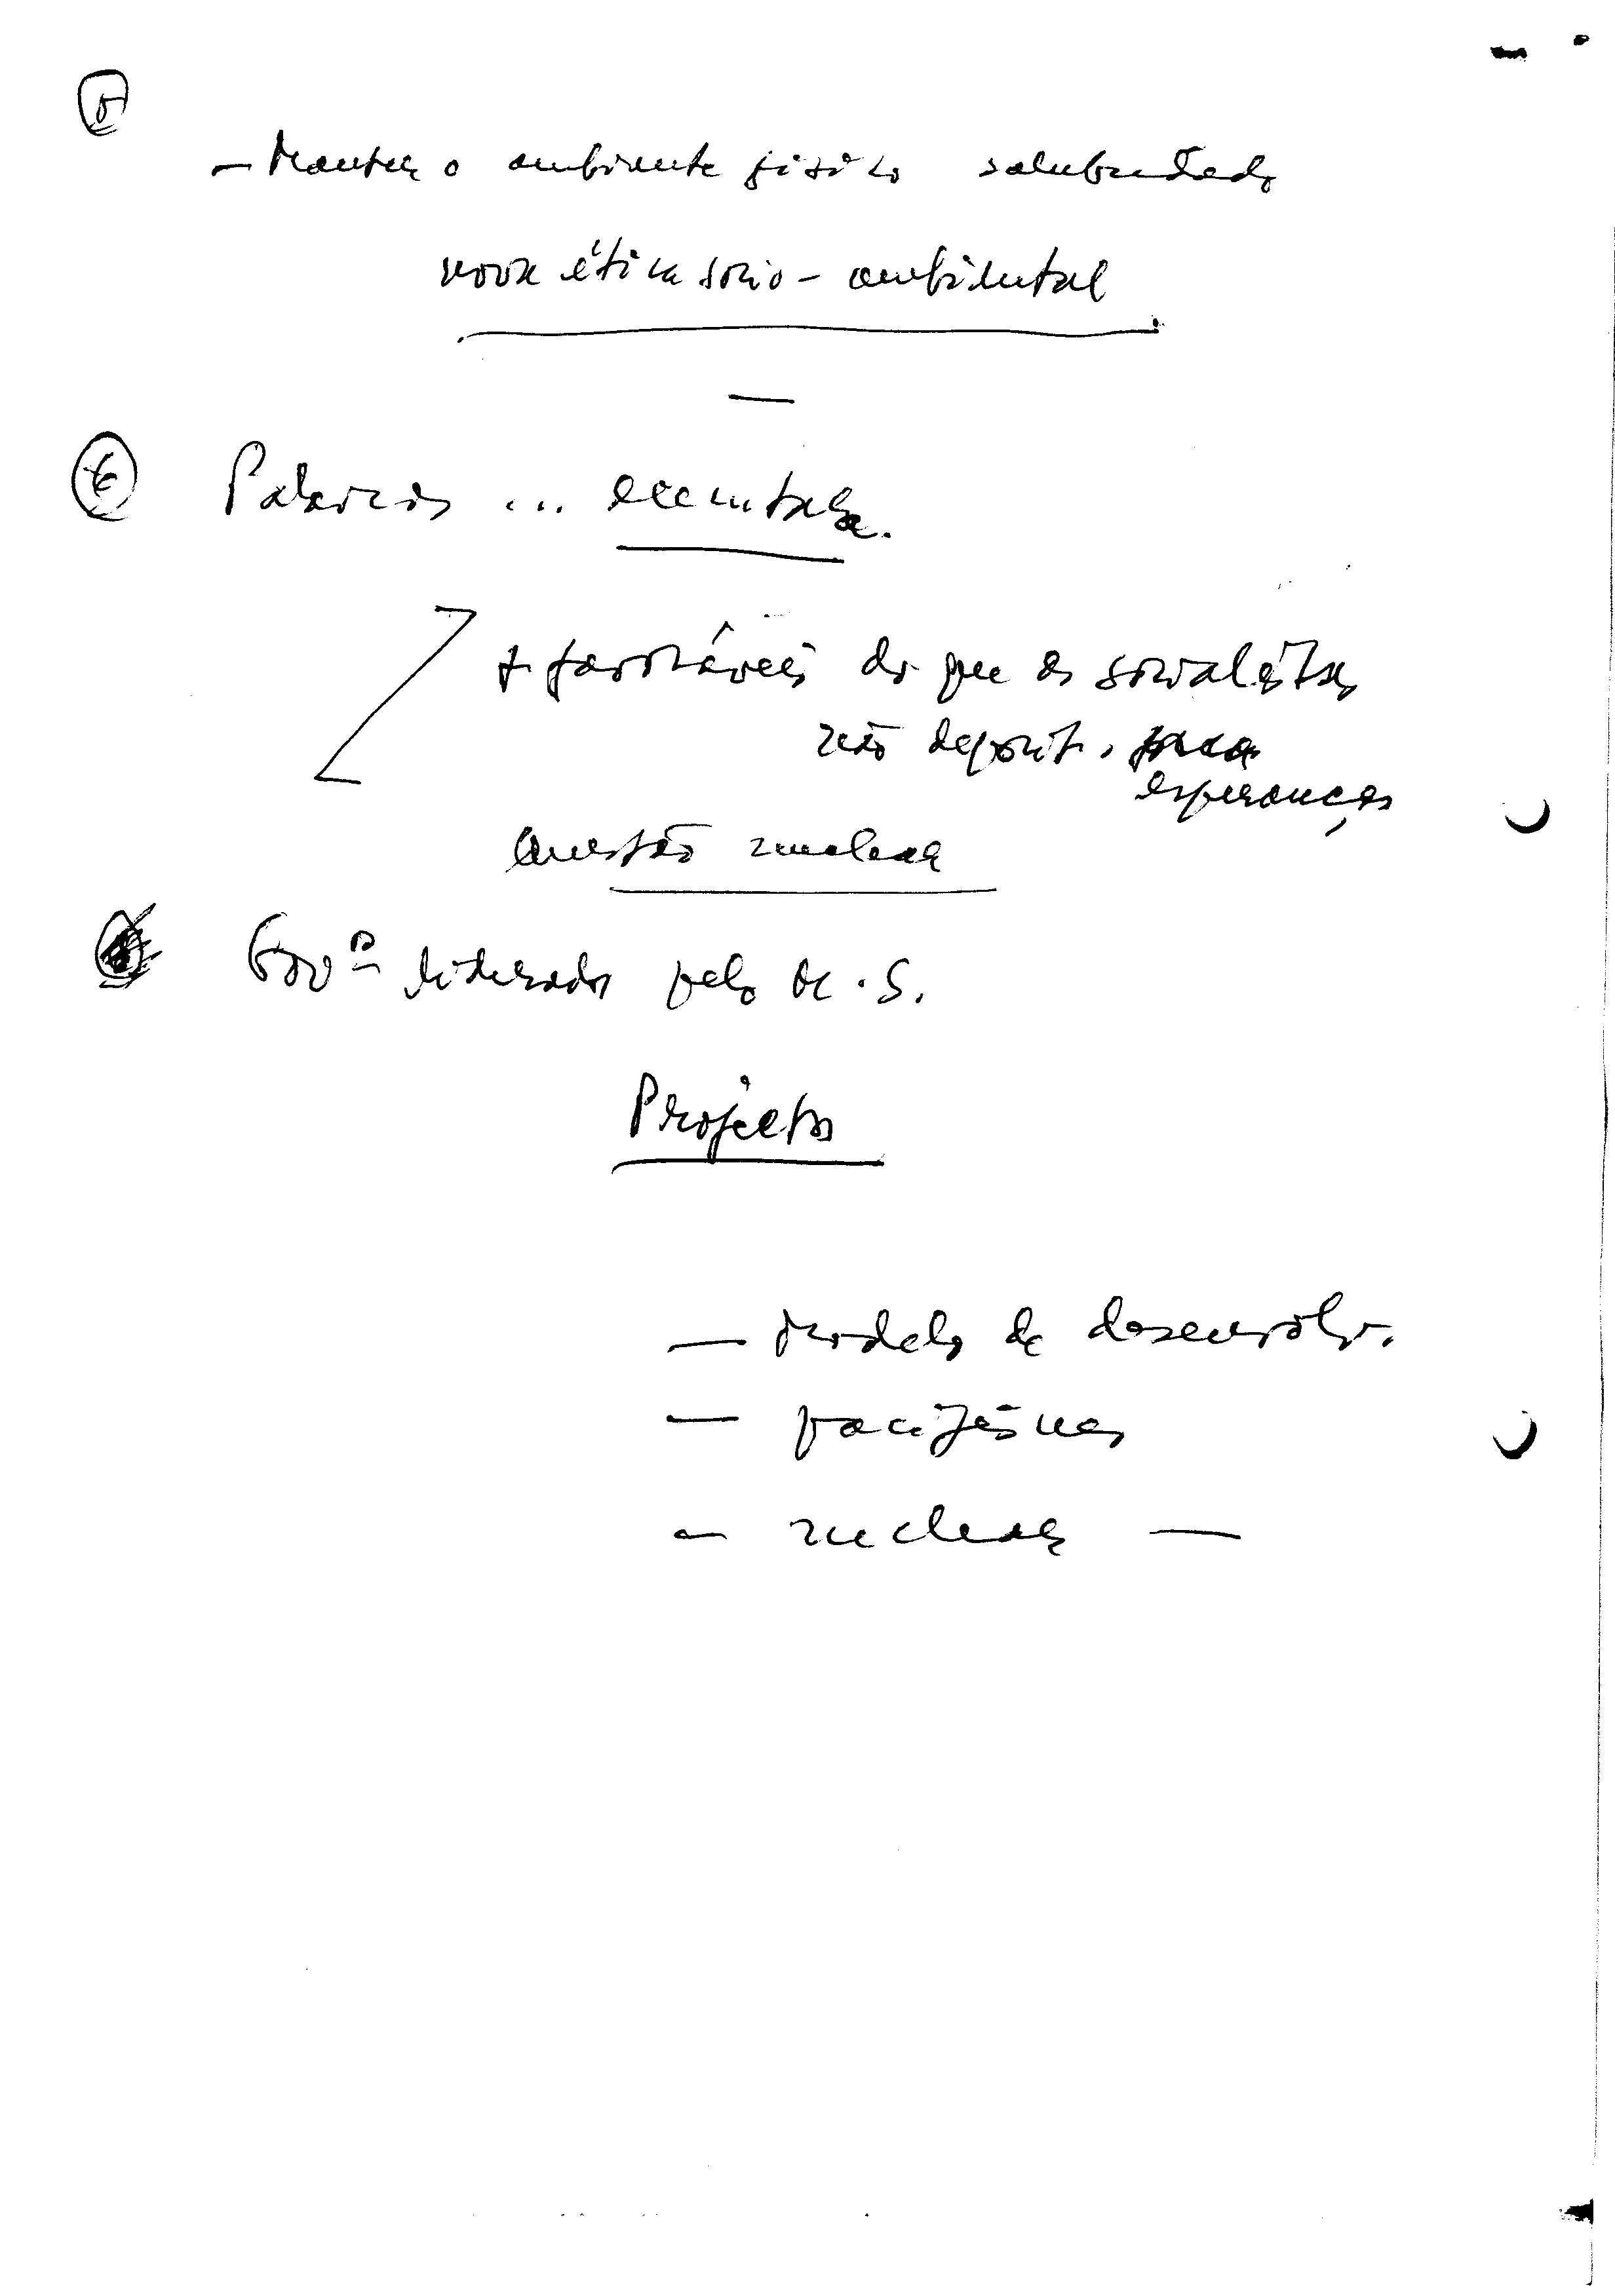 5
- Manter o ambiente físico salubrizado
nova ética socio-ambiental
—
6 Palavras ...
+ favoráveis do que os socialistas
não deposit.
esperanças
Questão nuclear
Govº liderado pelo M.S.
Projecto
- modelo de desenvolv.
- pacifismo
- nuclear —